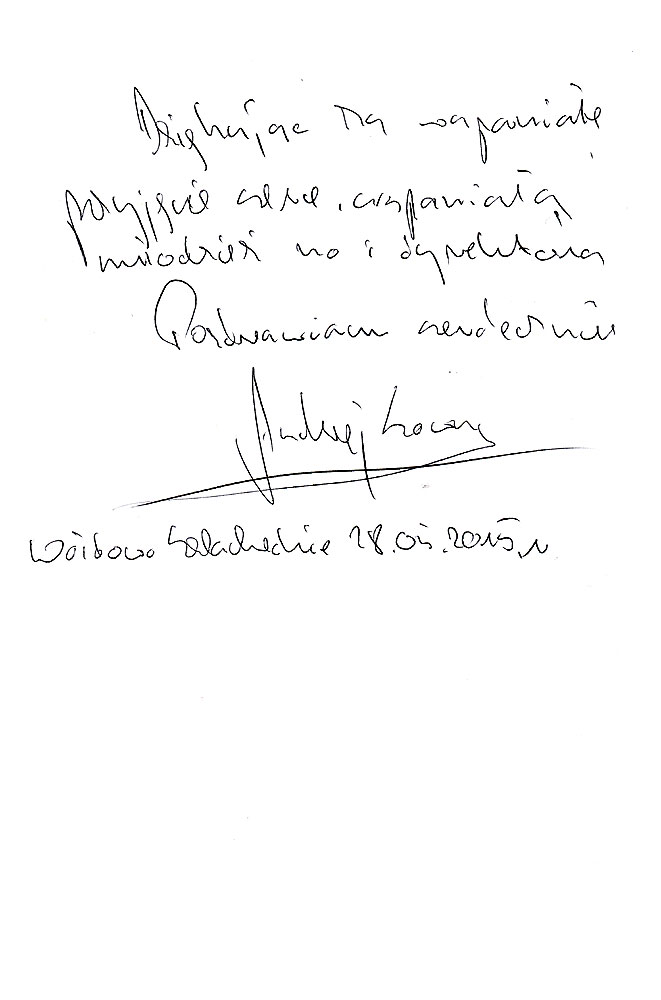 Dziękując za wspaniałe
przyjęcie wspaniałą
młodzież no i dyrektora
Pozdrawiam serdecznie
Andrzej
Szlachedzkie 28.05.2015 r